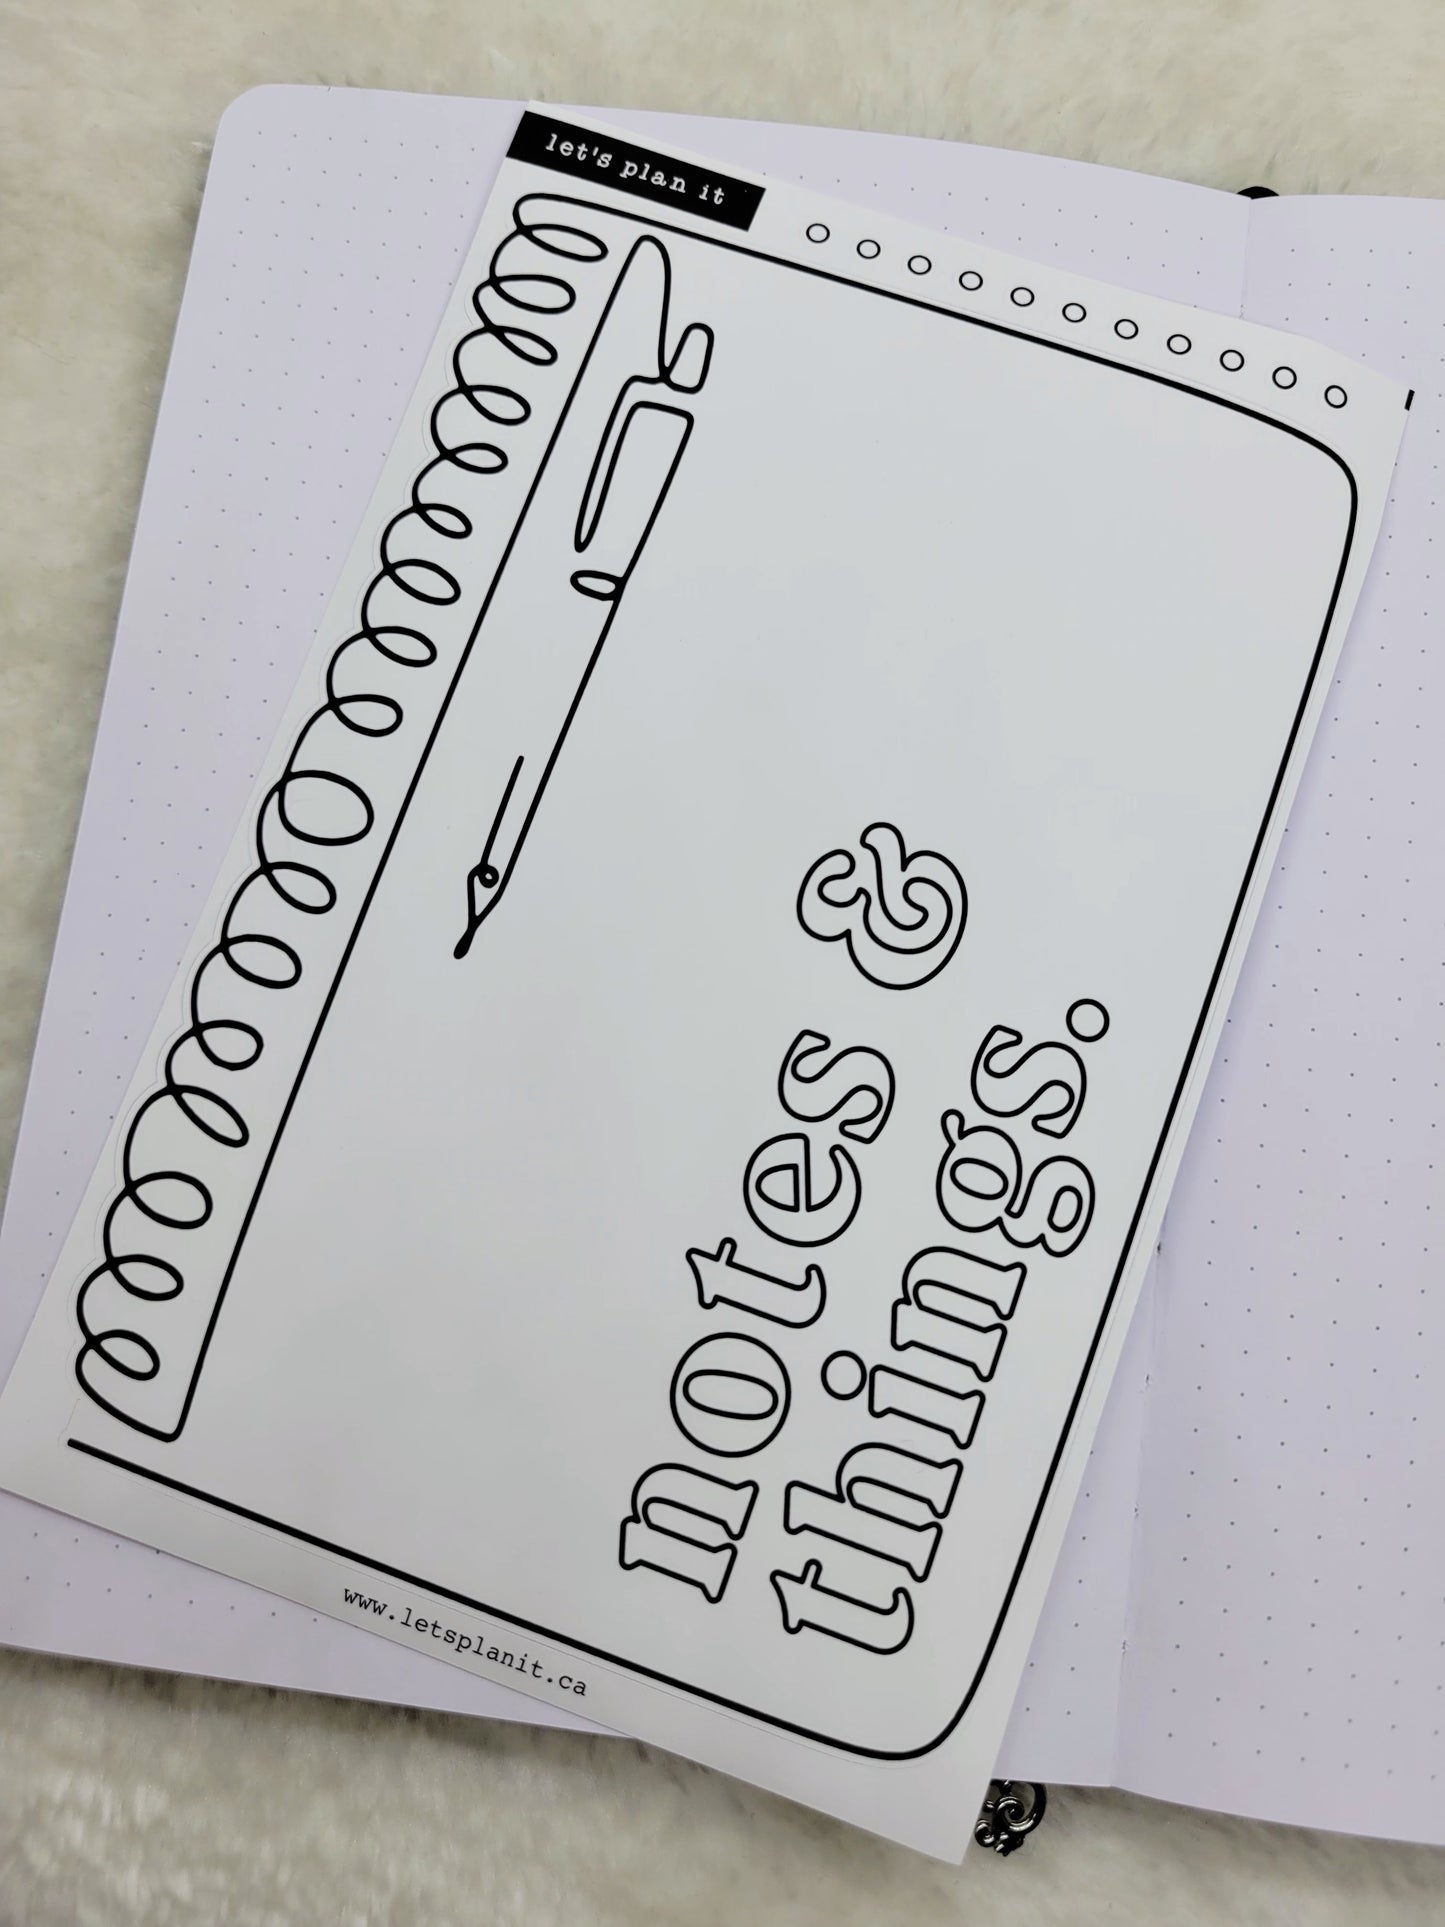 let's plan it
notes &
things.
www.letsplanit.ca